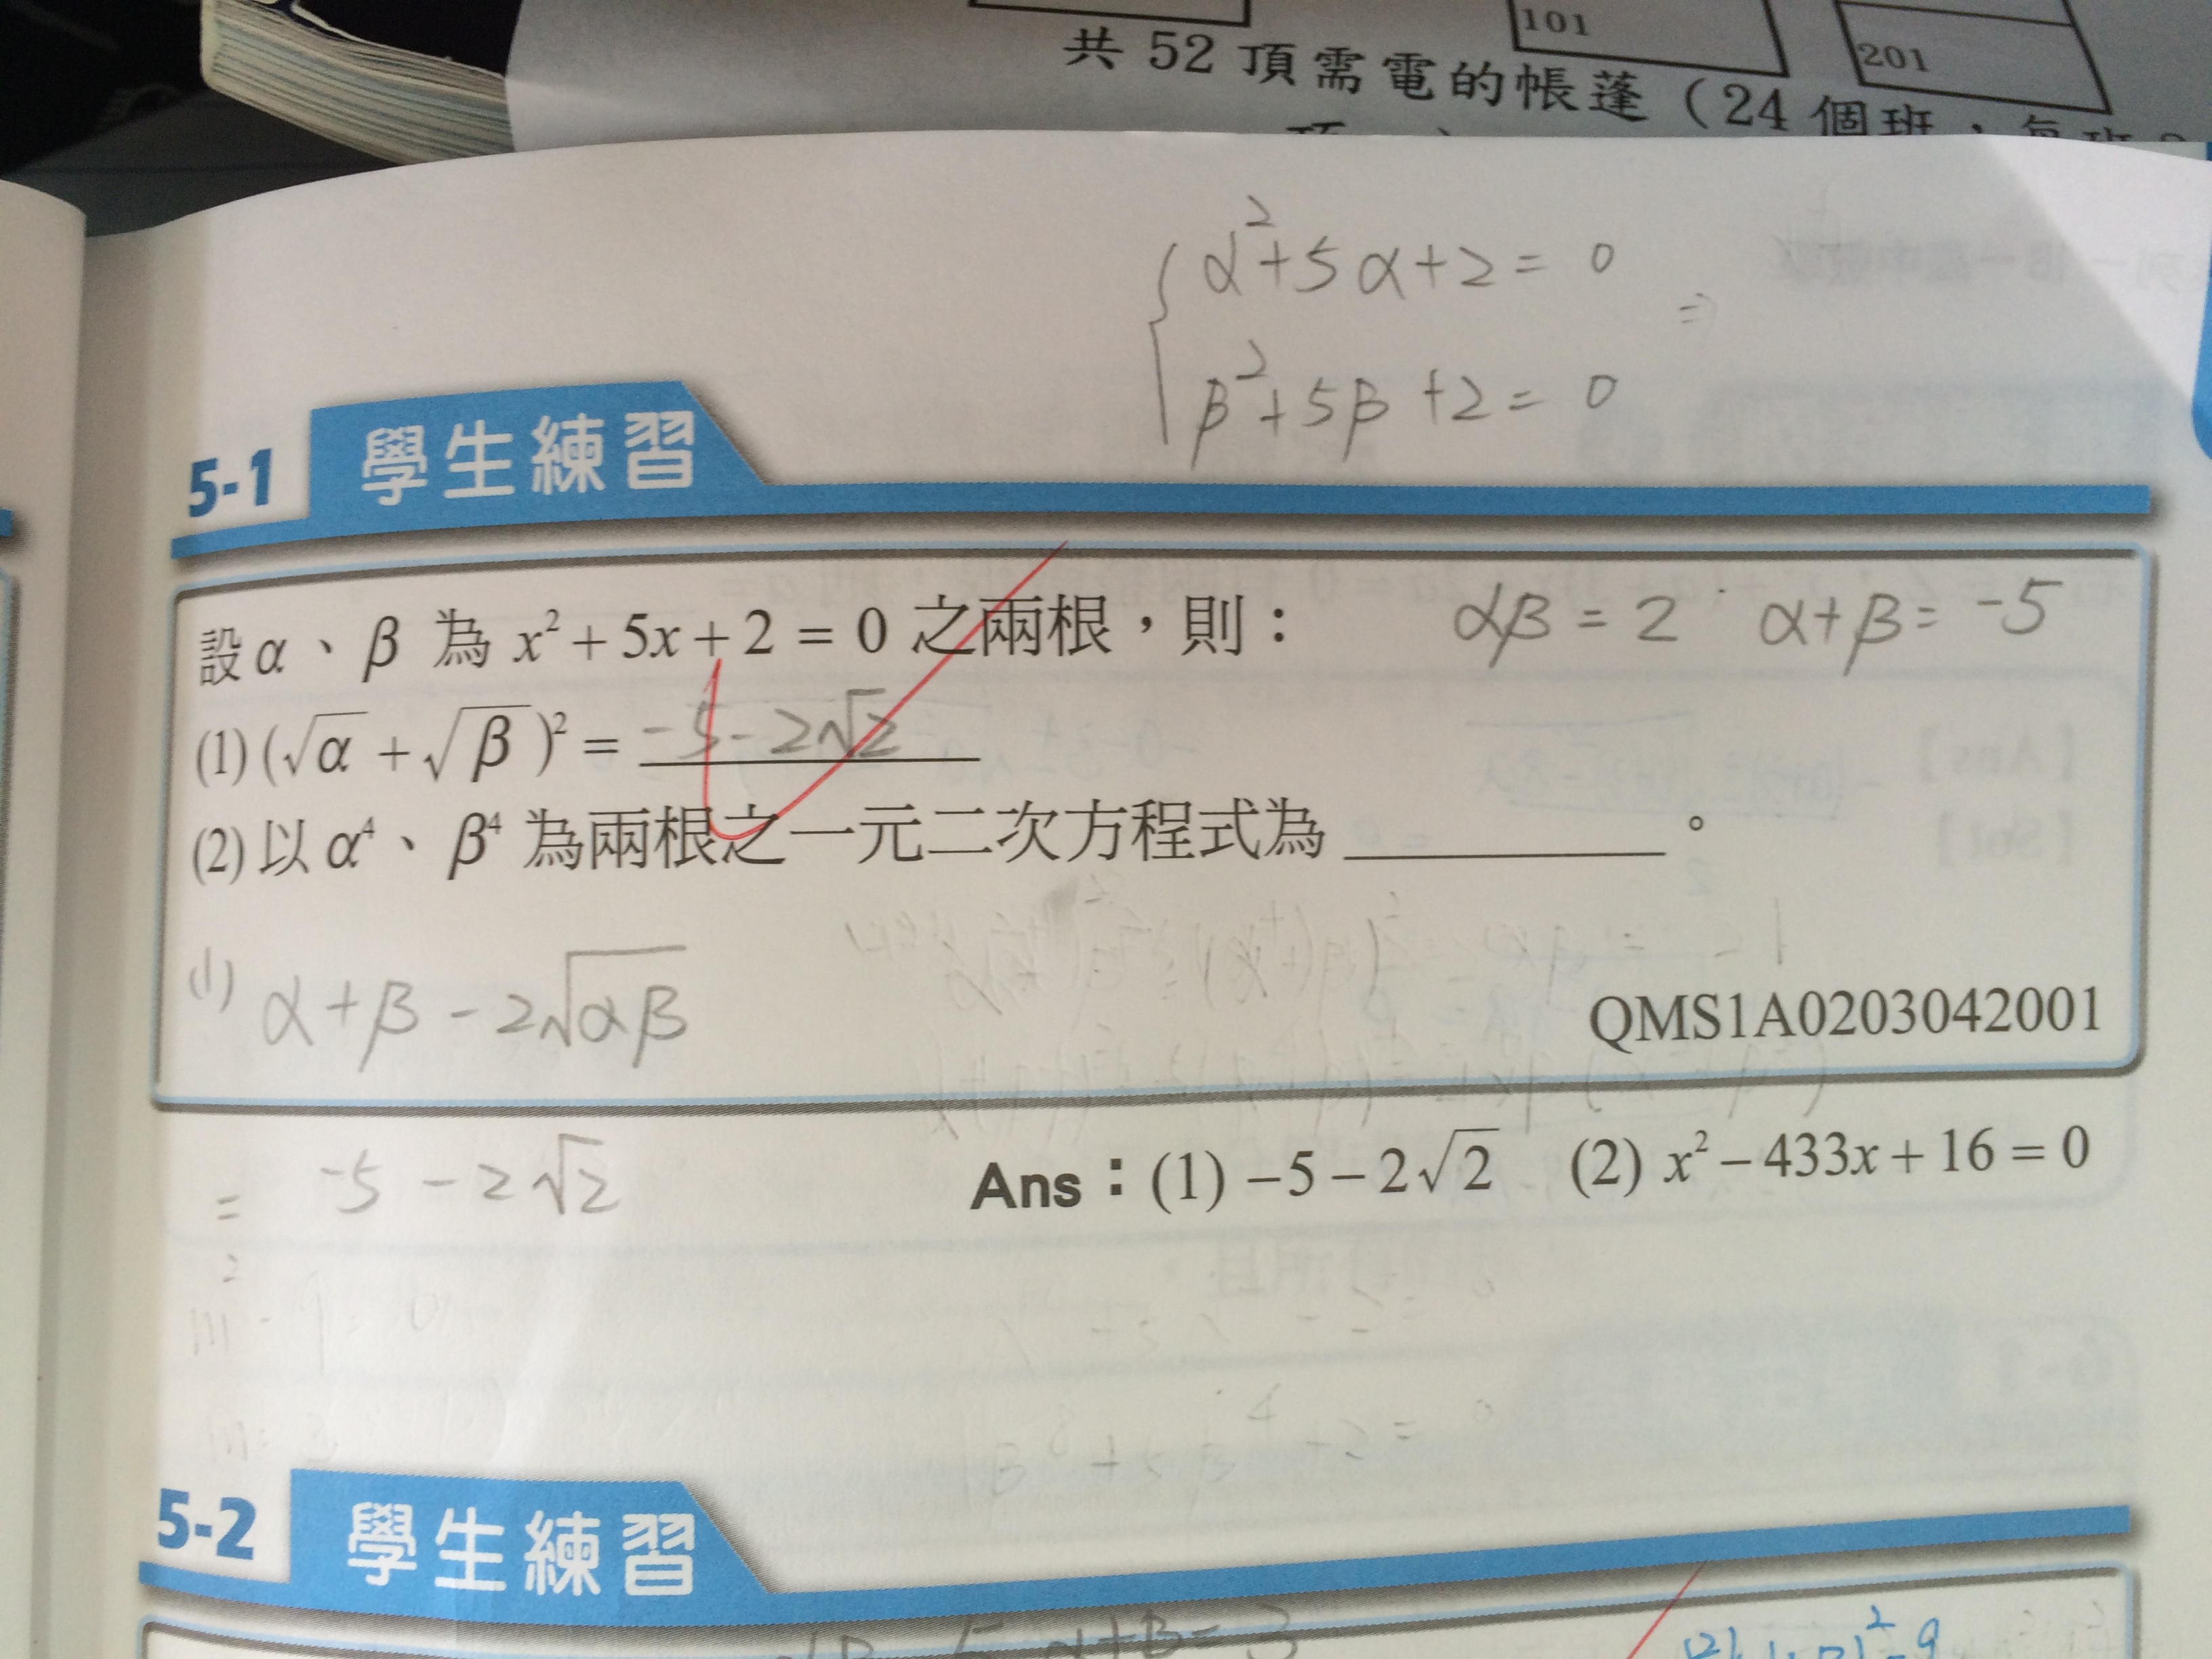 101
201
共 52 頂需電的帳蓬（24 個班，每班
α²+5α+2= 0 ⇒
β²+5β+2= 0
5-1 學生練習
設 α、β 為 x² + 5x + 2 = 0 之兩根，則： αβ = 2 α+β = -5
(1) (√α + √β)² = -5-2√2
(2) 以 α⁴、β⁴ 為兩根之一元二次方程式為 ________。
(1) α+β-2√αβ
QMS1A0203042001
= -5-2√2
Ans：(1) −5−2√2 (2) x²−433x+16=0
5-2 學生練習
α+β=3